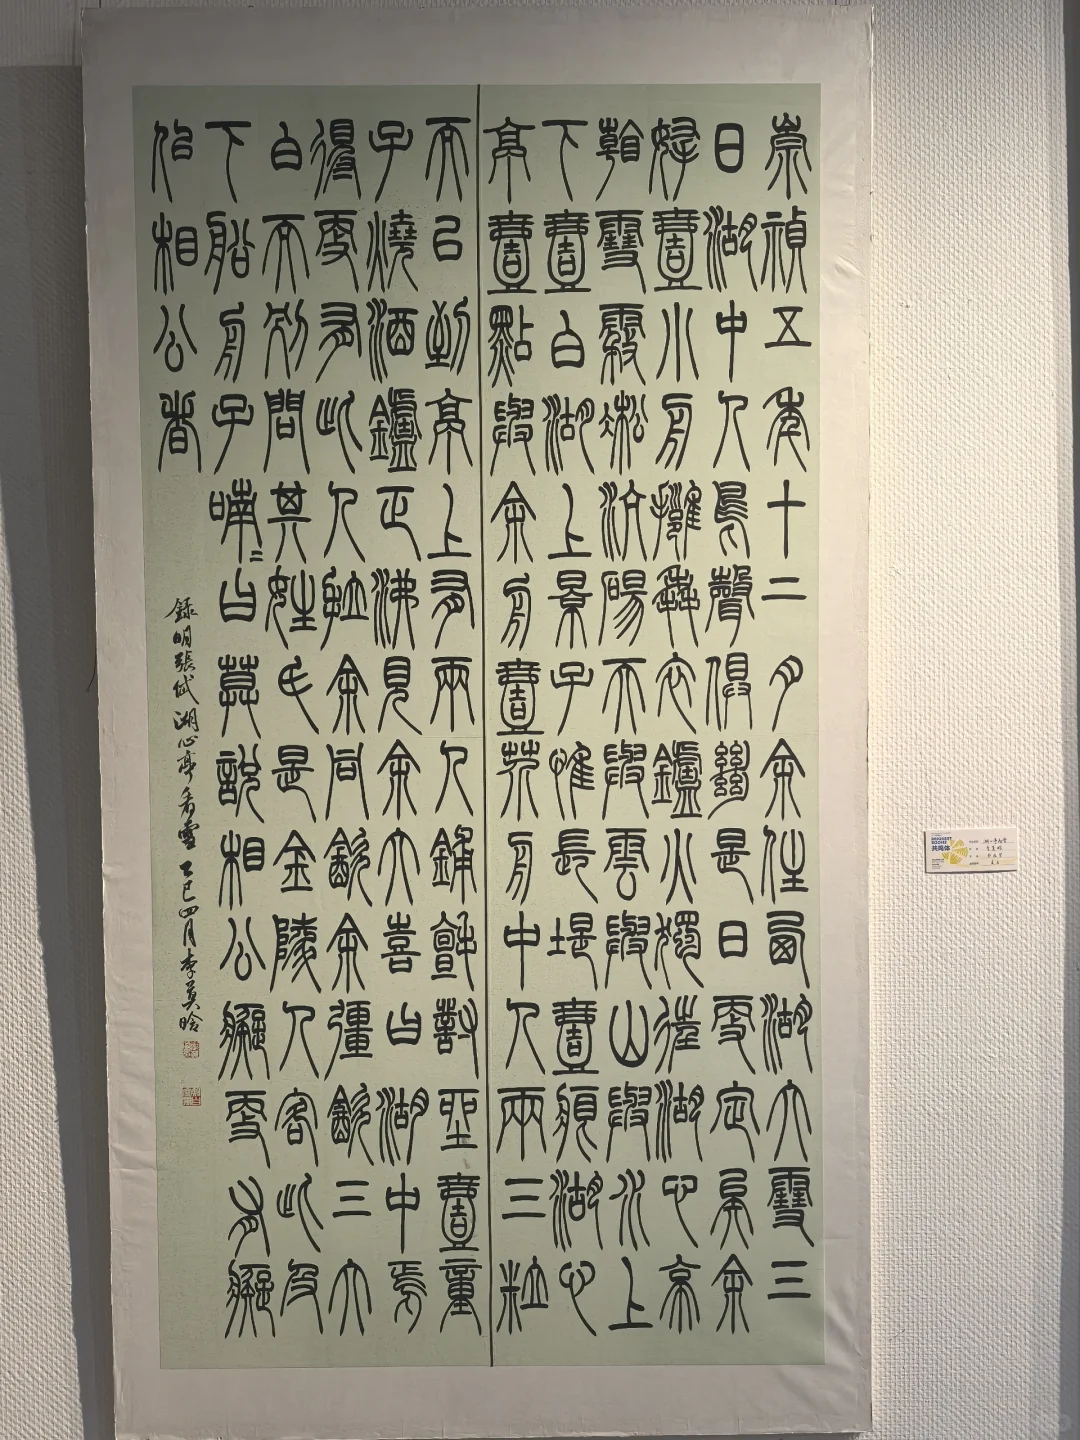 崇禎五年十二月余住西湖大雪三
日湖中人鳥聲俱絕是日更定矣余
拏壹小舟擁毳衣鑪火獨往湖心亭
看雪霧凇沆碭天與雲與山與水上
下壹白湖上景子惟長堤壹痕湖心
亭壹點與余舟壹芥舟中人兩三粒
而已到亭上有兩人鋪氈對坐壹童
子燒酒鑪正沸見余大喜曰湖中焉
得更有此人拉余同飲余彊飲三大
白而別問其姓氏是金陵人客此及
下船舟子喃〻曰莫說相公癡更有癡
佀相公者
錄明張岱湖心亭看雪 乙巳四月李
共同体